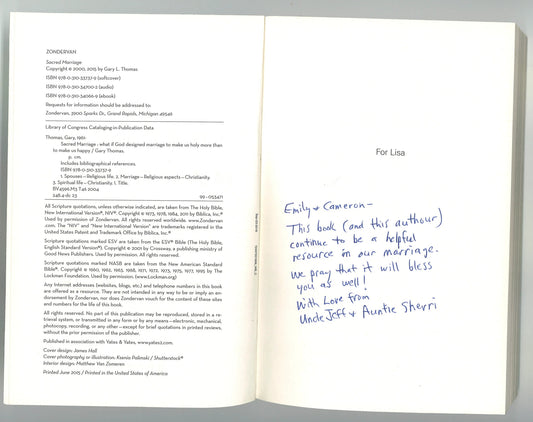 ZONDERVAN
Sacred Marriage
Copyright © 2000, 2015 by Gary L. Thomas
ISBN 978-0-310-33737-9 (softcover)
ISBN 978-0-310-34700-2 (audio)
ISBN 978-0-310-34066-9 (ebook)
Requests for information should be addressed to:
Zondervan, 3900 Sparks Dr., Grand Rapids, Michigan 49546
Library of Congress Cataloging-in-Publication Data
Thomas, Gary, 1961-
Sacred Marriage : what if God designed marriage to make us holy more than
to make us happy / Gary Thomas.
p. cm.
Includes bibliographical references.
ISBN 978-0-310-33737-9
1. Spouses—Religious life. 2. Marriage—Religious aspects—Christianity.
3. Spiritual life—Christianity. I. Title.
BV4596.M3 T46 2004
248.4-dc 23 99-053471
All Scripture quotations, unless otherwise indicated, are taken from The Holy Bible,
New International Version®, NIV®. Copyright © 1973, 1978, 1984, 2011 by Biblica, Inc.®
Used by permission of Zondervan. All rights reserved worldwide. www.Zondervan
.com. The "NIV" and "New International Version" are trademarks registered in the
United States Patent and Trademark Office by Biblica, Inc.®
Scripture quotations marked ESV are taken from the ESV® Bible (The Holy Bible,
English Standard Version®). Copyright © 2001 by Crossway, a publishing ministry of
Good News Publishers. Used by permission. All rights reserved.
Scripture quotations marked NASB are taken from the New American Standard
Bible®. Copyright © 1960, 1962, 1963, 1968, 1971, 1972, 1973, 1975, 1977, 1995 by The
Lockman Foundation. Used by permission. (www.Lockman.org)
Any Internet addresses (websites, blogs, etc.) and telephone numbers in this book
are offered as a resource. They are not intended in any way to be or imply an en-
dorsement by Zondervan, nor does Zondervan vouch for the content of these sites
and numbers for the life of this book.
All rights reserved. No part of this publication may be reproduced, stored in a re-
trieval system, or transmitted in any form or by any means—electronic, mechanical,
photocopy, recording, or any other—except for brief quotations in printed reviews,
without the prior permission of the publisher.
Published in association with Yates & Yates, www.yates2.com.
Cover design: James Hall
Cover photography or illustration: Ksenia Palimski / Shutterstock®
Interior design: Matthew Van Zomeren
Printed June 2015 / Printed in the United States of America
For Lisa
Emily + Cameron –
This book (and this authour)
continue to be a helpful
resource in our marriage.
We pray that it will bless
you as well!
With Love from
Uncle Jeff + Auntie Sherri